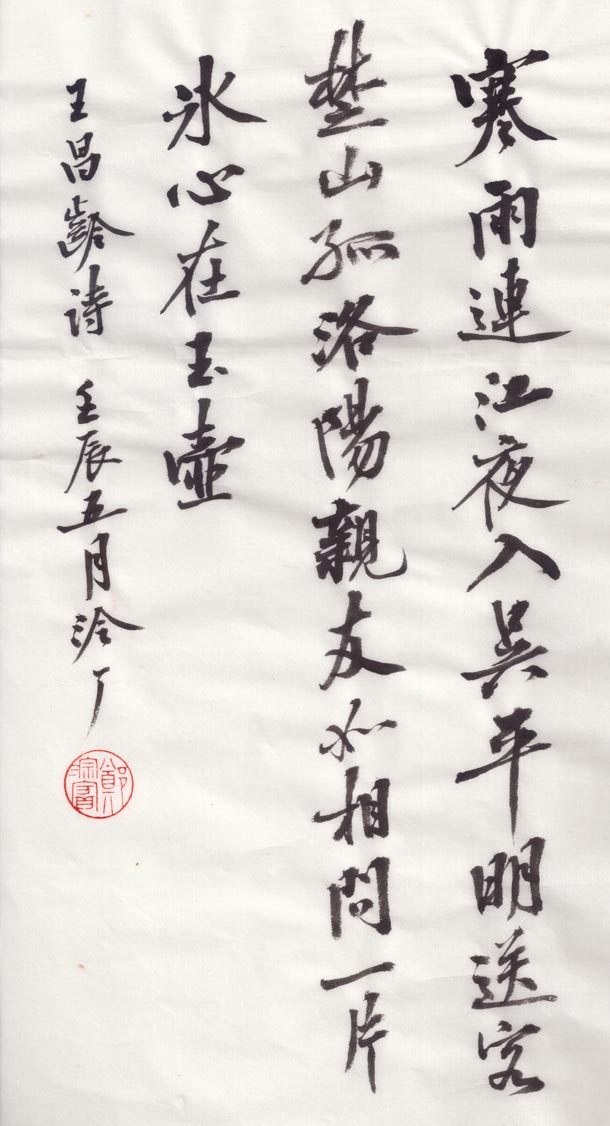 寒雨連江夜入吳平明送客
楚山孤洛陽親友如相問一片
冰心在玉壺
王昌齡詩 壬辰五月